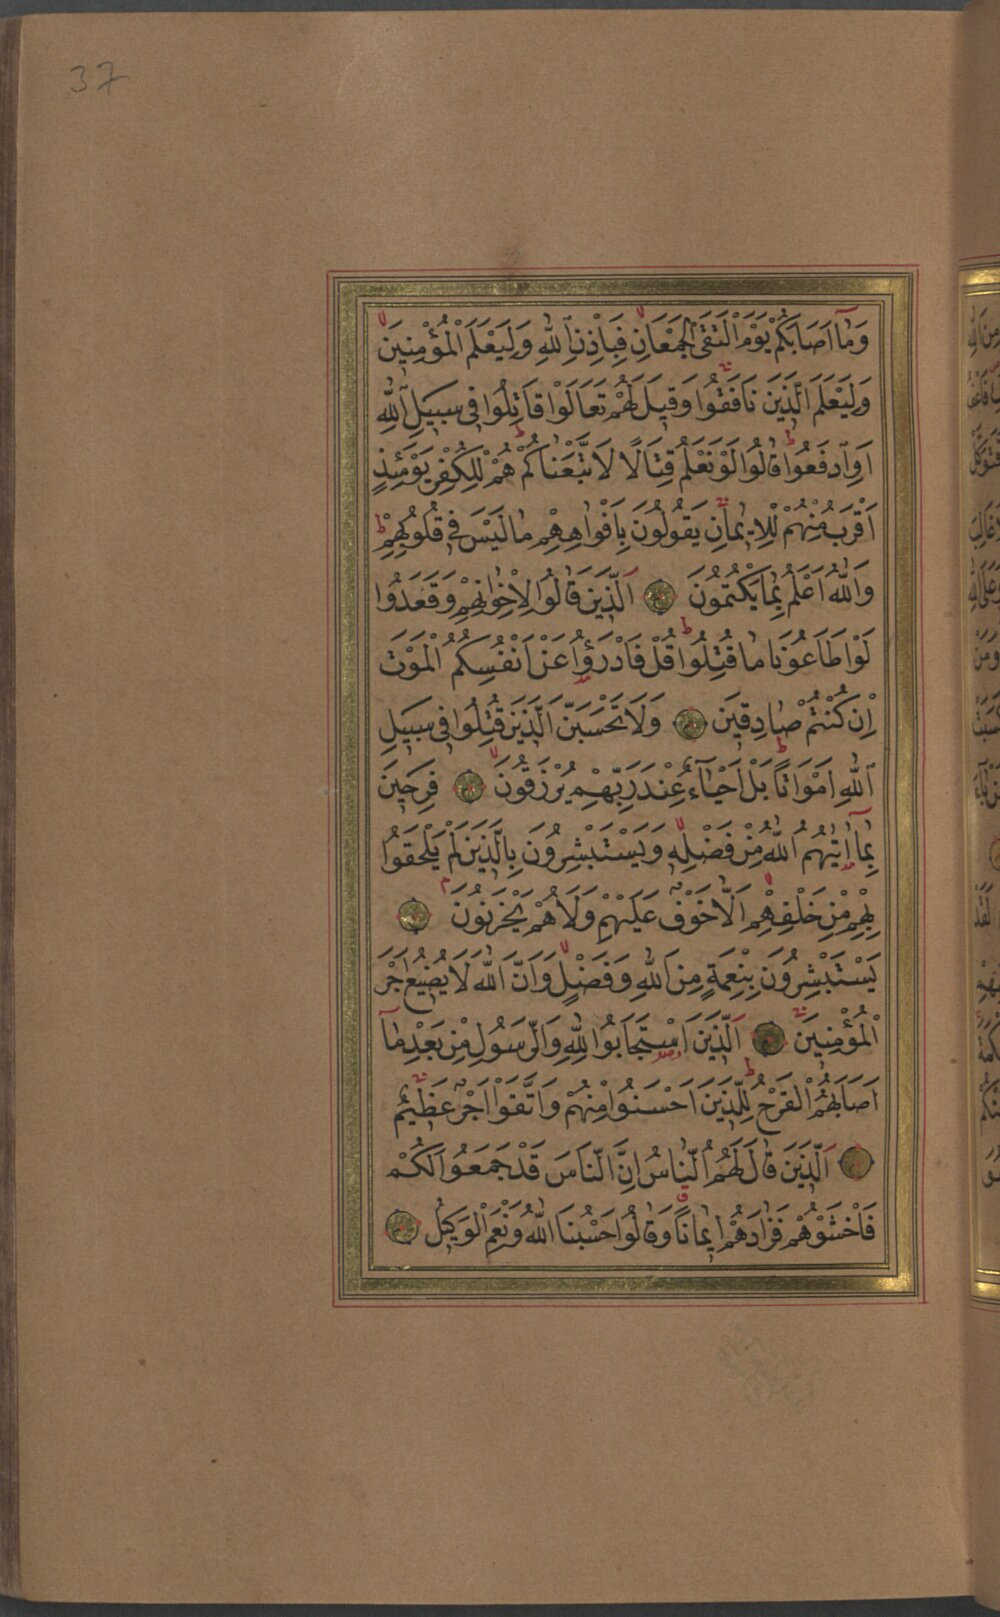 37
وَمَٓا اَصَابَكُمْ يَوْمَ الْتَقَى الْجَمْعَانِ فَبِاِذْنِ اللّٰهِ وَلِيَعْلَمَ الْمُؤْمِنِينَ
وَلِيَعْلَمَ الَّذِينَ نَافَقُوا وَقِيلَ لَهُمْ تَعَالَوْا قَاتِلُوا فِى سَبِيلِ اللّٰهِ
اَوِ ادْفَعُوا قَالُوا لَوْ نَعْلَمُ قِتَالًا لَاتَّبَعْنَاكُمْ هُمْ لِلْكُفْرِ يَوْمَئِذٍ
اَقْرَبُ مِنْهُمْ لِلْاِيمَانِ يَقُولُونَ بِاَفْوَاهِهِمْ مَا لَيْسَ فِى قُلُوبِهِمْ
وَاللّٰهُ اَعْلَمُ بِمَا يَكْتُمُونَ اَلَّذِينَ قَالُوا لِاِخْوَانِهِمْ وَقَعَدُوا
لَوْ اَطَاعُونَا مَا قُتِلُوا قُلْ فَادْرَؤُا عَنْ اَنْفُسِكُمُ الْمَوْتَ
اِنْ كُنْتُمْ صَادِقِينَ وَلَا تَحْسَبَنَّ الَّذِينَ قُتِلُوا فِى سَبِيلِ
اللّٰهِ اَمْوَاتًا بَلْ اَحْيَٓاءٌ عِنْدَ رَبِّهِمْ يُرْزَقُونَ فَرِحِينَ
بِمَٓا اٰتٰيهُمُ اللّٰهُ مِنْ فَضْلِهِ وَيَسْتَبْشِرُونَ بِالَّذِينَ لَمْ يَلْحَقُوا
بِهِمْ مِنْ خَلْفِهِمْ اَلَّا خَوْفٌ عَلَيْهِمْ وَلَا هُمْ يَحْزَنُونَ
يَسْتَبْشِرُونَ بِنِعْمَةٍ مِنَ اللّٰهِ وَفَضْلٍ وَاَنَّ اللّٰهَ لَا يُضِيعُ اَجْرَ
الْمُؤْمِنِينَ اَلَّذِينَ اسْتَجَابُوا لِلّٰهِ وَالرَّسُولِ مِنْ بَعْدِ مَٓا
اَصَابَهُمُ الْقَرْحُ لِلَّذِينَ اَحْسَنُوا مِنْهُمْ وَاتَّقَوْا اَجْرٌ عَظِيمٌ
اَلَّذِينَ قَالَ لَهُمُ النَّاسُ اِنَّ النَّاسَ قَدْ جَمَعُوا لَكُمْ
فَاخْشَوْهُمْ فَزَادَهُمْ اِيمَانًا وَقَالُوا حَسْبُنَا اللّٰهُ وَنِعْمَ الْوَكِيلُ